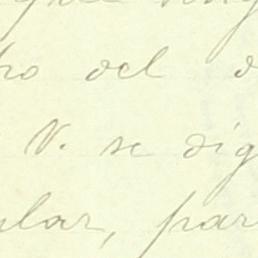 ro del d
V. se dig
ular, par